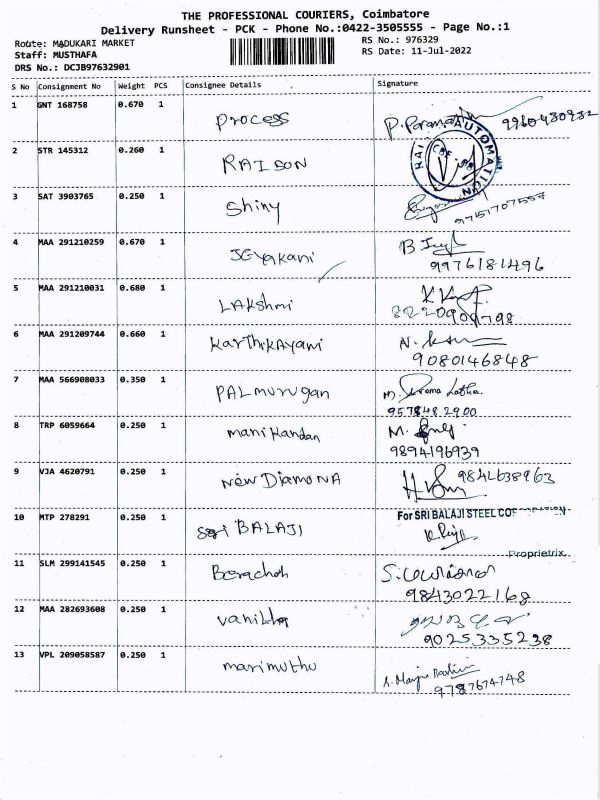 THE PROFESSIONAL COURIERS, Coimbatore
Delivery Runsheet - PCK - Phone No.:0422-3505555 - Page No.:1
Route: MADUKARI MARKET RS No.: 976329
Staff: MUSTHAFA RS Date: 11-Jul-2022
DRS No.: DCJB97632901
S No Consignment No Weight PCS Consignee Details Signature
1 GNT 168758 0.670 1 Process
2 STR 145312 0.260 1 RAISON RAI AUTOMATION
3 SAT 3903765 0.250 1 Shiny
4 MAA 291210259 0.670 1 JGYAKANI
9976181496
5 MAA 291210031 0.680 1 LAKshmi
6 MAA 291209744 0.660 1 KARTHIKAYAMI
9080146848
7 MAA 566908033 0.350 1 PALMURUGAN
8 TRP 6059664 0.250 1 mani Kandan
9894196939
9 VJA 4620791 0.250 1 NEW DIAMONA 9842638963
10 MTP 278291 0.250 1 SRI BALAJI For SRI BALAJI STEEL
Proprietrix
11 SLM 299141545 0.250 1
9843022168
12 MAA 282693608 0.250 1
9025335238
13 VPL 209058587 0.250 1 marimuthu
9787674748